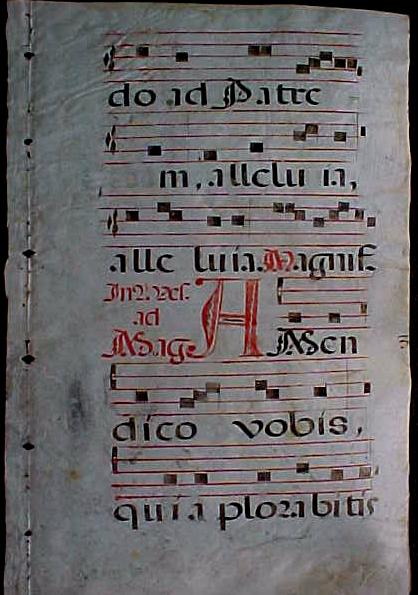 do ad Patre
m, allelu ia,
alle lu ia. Magnif.
In 2. Vesp.
ad
Mag. A Men
dico vobis,
quia plorabitis